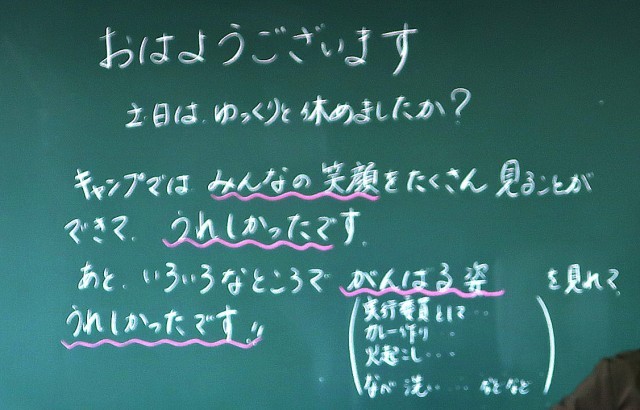 おはようございます
土日は、ゆっくりと休めましたか?
キャンプでは みんなの笑顔をたくさん見ることが
できて、うれしかったです。
あと、いろいろなところで がんばる姿 を見れて、
うれしかったです!!
実行委員として‥
カレー作り‥
火起こし‥‥
なべ洗い‥‥などなど